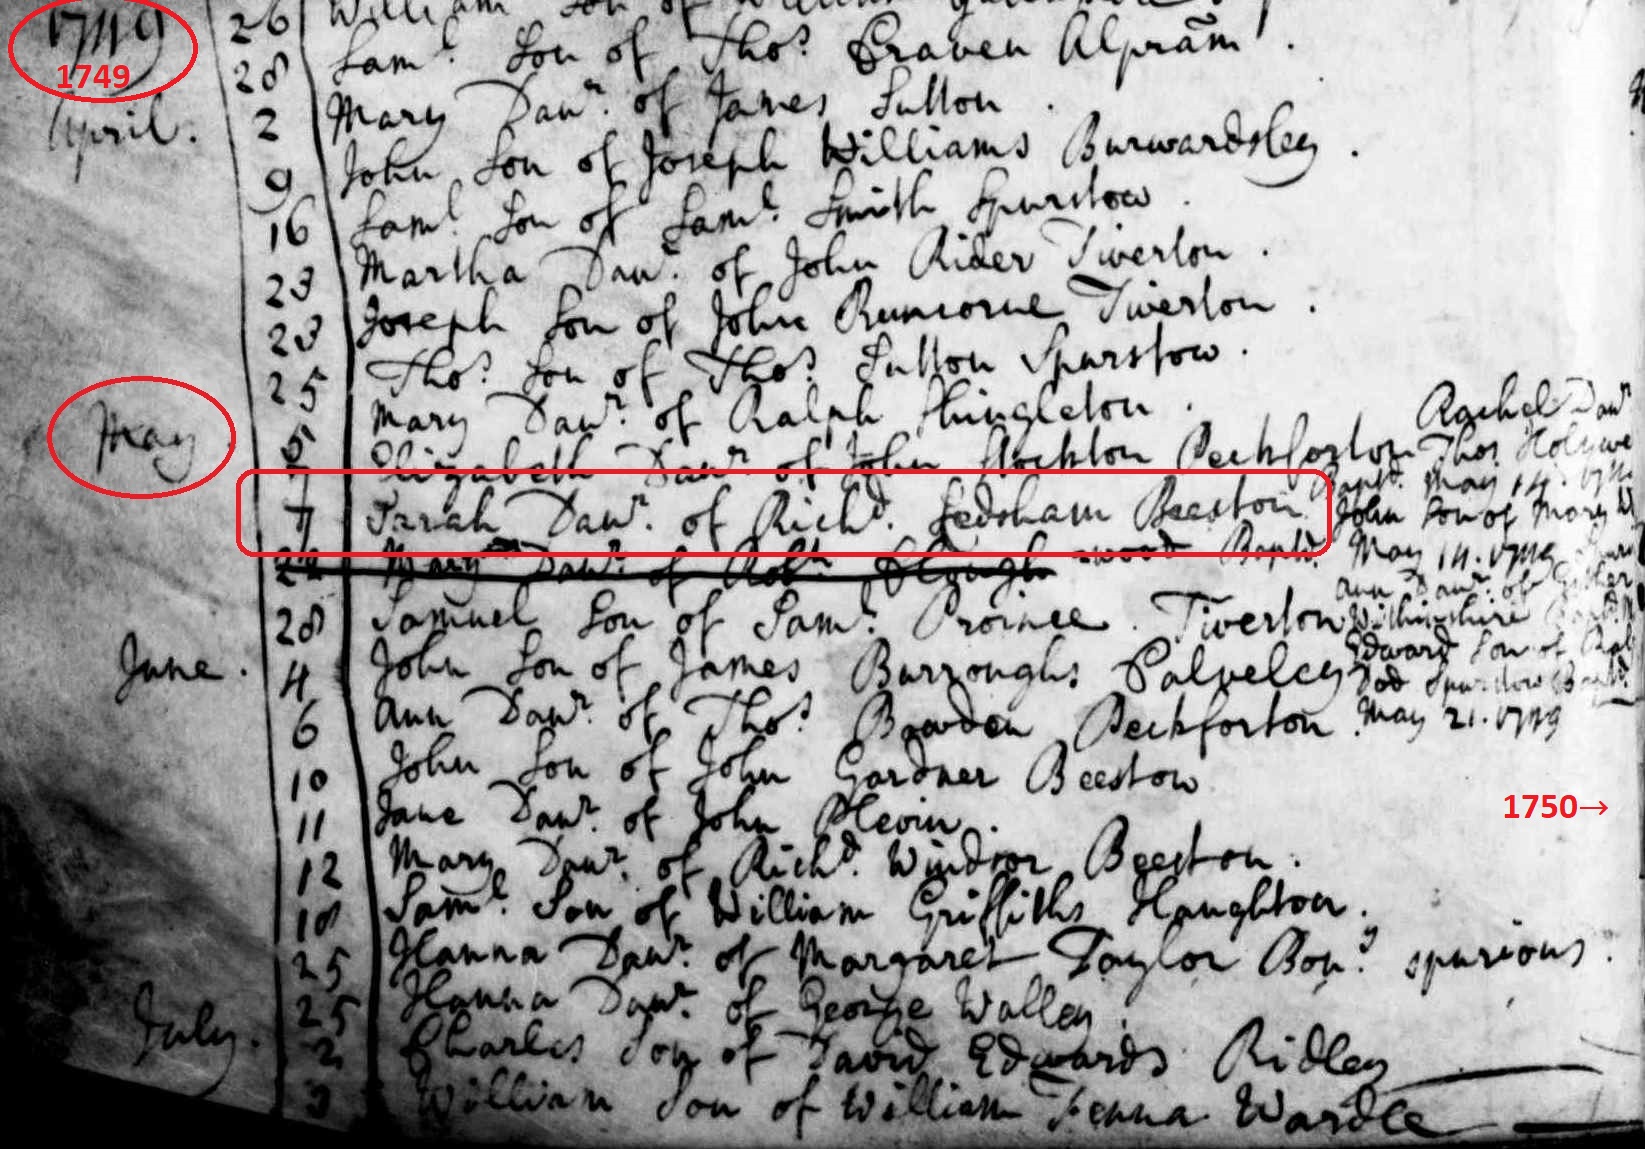 1749
1749
26 William Son of William
28 Sam.l Son of Tho.s Craven Alpram.
April. 2 Mary Daur. of James Sutton.
9 John Son of Joseph Williams Burwardsley.
16 Sam.l Son of Sam.l Smith Spurstow.
23 Martha Daur. of John Rider Tiverton.
23 Joseph Son of John Runcorne Tiverton.
25 Tho.s Son of Tho.s Sutton Spurstow.
May 5 Mary Daur. of Ralph Shingleton.
7 Elizabeth Daur. of John Stockton Peckforton
7 Sarah Daur. of Rich.d Ledsham Beeston
Mary Daur. of Rob.t Clough
28 Samuel Son of Sam.l Proinee. Tiverton
June. 4 John Son of James Burroughs Calveley
6 Ann Daur. of Tho.s Bowden Peckforton.
10 John Son of John Gardner Beestow
11 Jane Daur. of John Plevin.
12 Mary Daur. of Rich.d Windsor Beeston.
18 Sam.l Son of William Griffiths Haughton.
25 Hanna Daur. of Margaret Taylor Bon.y spurious.
25 Hanna Daur. of George Walley.
July. 2 Charles Son of David Edwards Ridley
3 William Son of William Fenna Wardle
Rachel Daur
Thos
Bapt.d May 14. 1749
John Son of Mary
wood Bapt.d May 14. 1749
Ann Daur. of
Edward Son of
Dod Spurstow Bapt.d
May 21. 1749
1750→